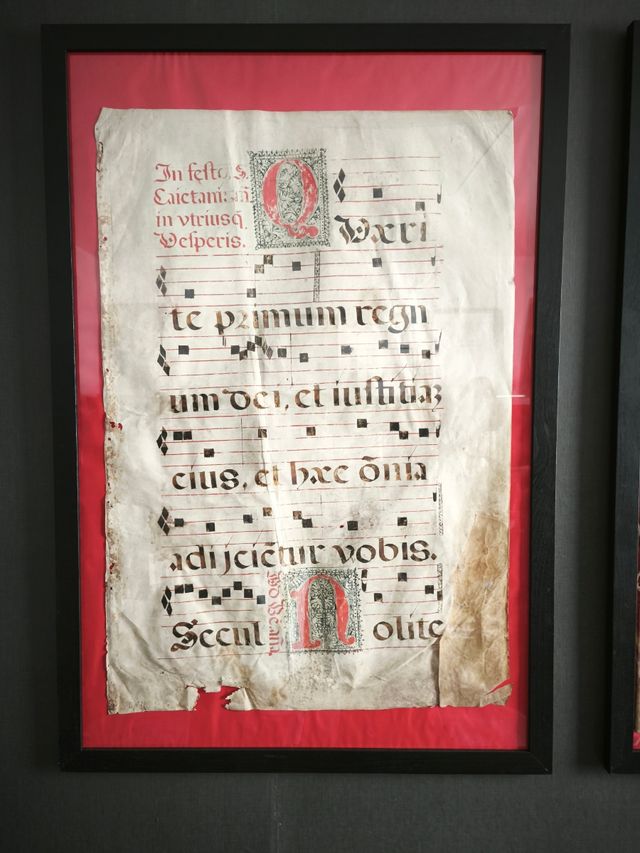 In festo S.
Caietani
in vtriusq̃
Vesperis.
QVæri
te primum regn
um dei, et iustitiaʒ
eius, et hæc õnia
adijciẽtur vobis.
Secul
Nolite